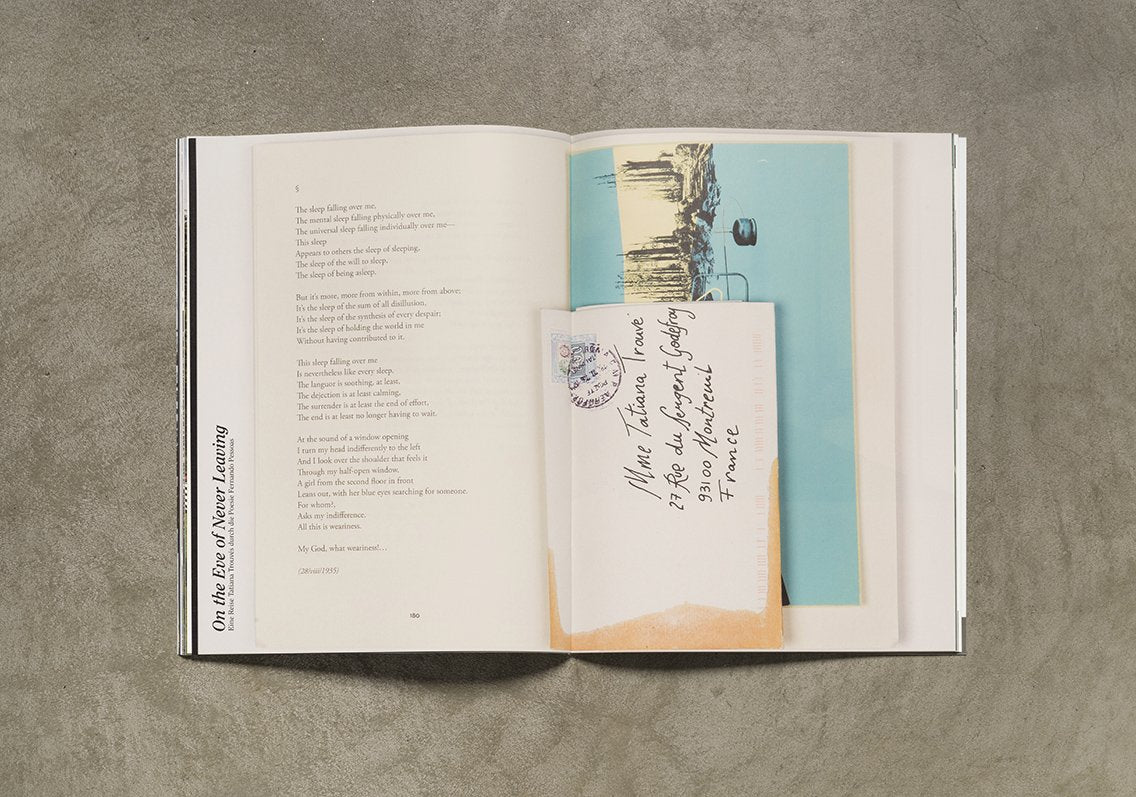 On the Eve of Never Leaving
Eine Reise Tatiana Trouvés durch die Poesie Fernando Pessoas
§
The sleep falling over me,
The mental sleep falling physically over me,
The universal sleep falling individually over me—
This sleep
Appears to others the sleep of sleeping,
The sleep of the will to sleep,
The sleep of being asleep.
But it's more, more from within, more from above;
It's the sleep of the sum of all disillusion,
It's the sleep of the synthesis of every despair;
It's the sleep of holding the world in me
Without having contributed to it.
This sleep falling over me
Is nevertheless like every sleep.
The languor is soothing, at least,
The dejection is at least calming,
The surrender is at least the end of effort,
The end is at least no longer having to wait.
At the sound of a window opening
I turn my head indifferently to the left
And I look over the shoulder that feels it
Through my half-open window.
A girl from the second floor in front
Leans out, with her blue eyes searching for someone.
For whom?,
Asks my indifference.
All this is weariness.
My God, what weariness!…
(28/viii/1935)
180
Mme Tatiana Trouvé
27 Rue du Sergent Godefroy
93100 Montreuil
France